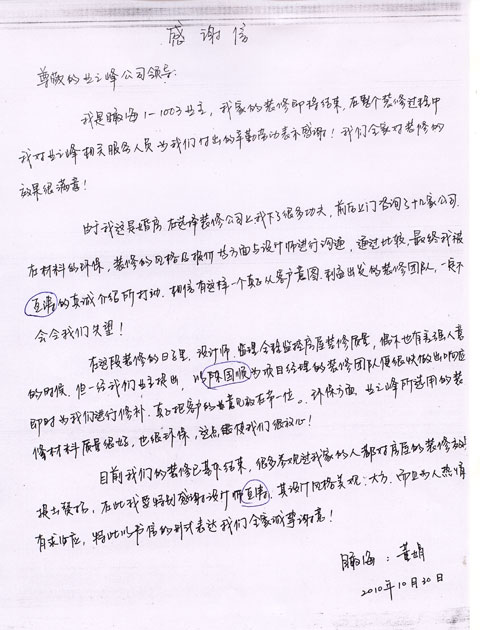 感谢信
尊敬的业之峰公司领导:
我是瞰海1-1003业主,我家的装修即将结束,在整个装修过程中
我对业之峰相关服务人员为我们付出的辛勤劳动表示感谢!我们全家对装修的
效果很满意!
由于我这是婚房,在选择装修公司上我下了很多功夫,前后上门咨询了十几家公司.
在材料的环保,装修的风格及报价等方面与设计师进行沟通,通过比较,最终我被
的真诚介绍所打动.相信有这样一个真正从客户意图、利益出发的装修团队,一定不
会令我们失望!
在这段装修的日子里,设计师、监理全程监控房屋装修质量,偶尔也有差强人意
的时候,但一经我们业主提出,以陈国顺为项目经理的装修团队便很快做出响应
即时为我们进行修补.真正把客户的意见放在第一位。环保方面,业之峰所选用的装
修材料质量很好,也很环保,这点能使我们很放心!
目前我们的装修已基本结束,很多参观过我家的人都对房屋的装修效果
提出赞扬,在此我要特别感谢设计师,其设计风格美观、大方,而且为人热情
有求必应,特此以书信的形式表达我们全家诚挚谢意!
瞰海:黄娟
2010年10月30日